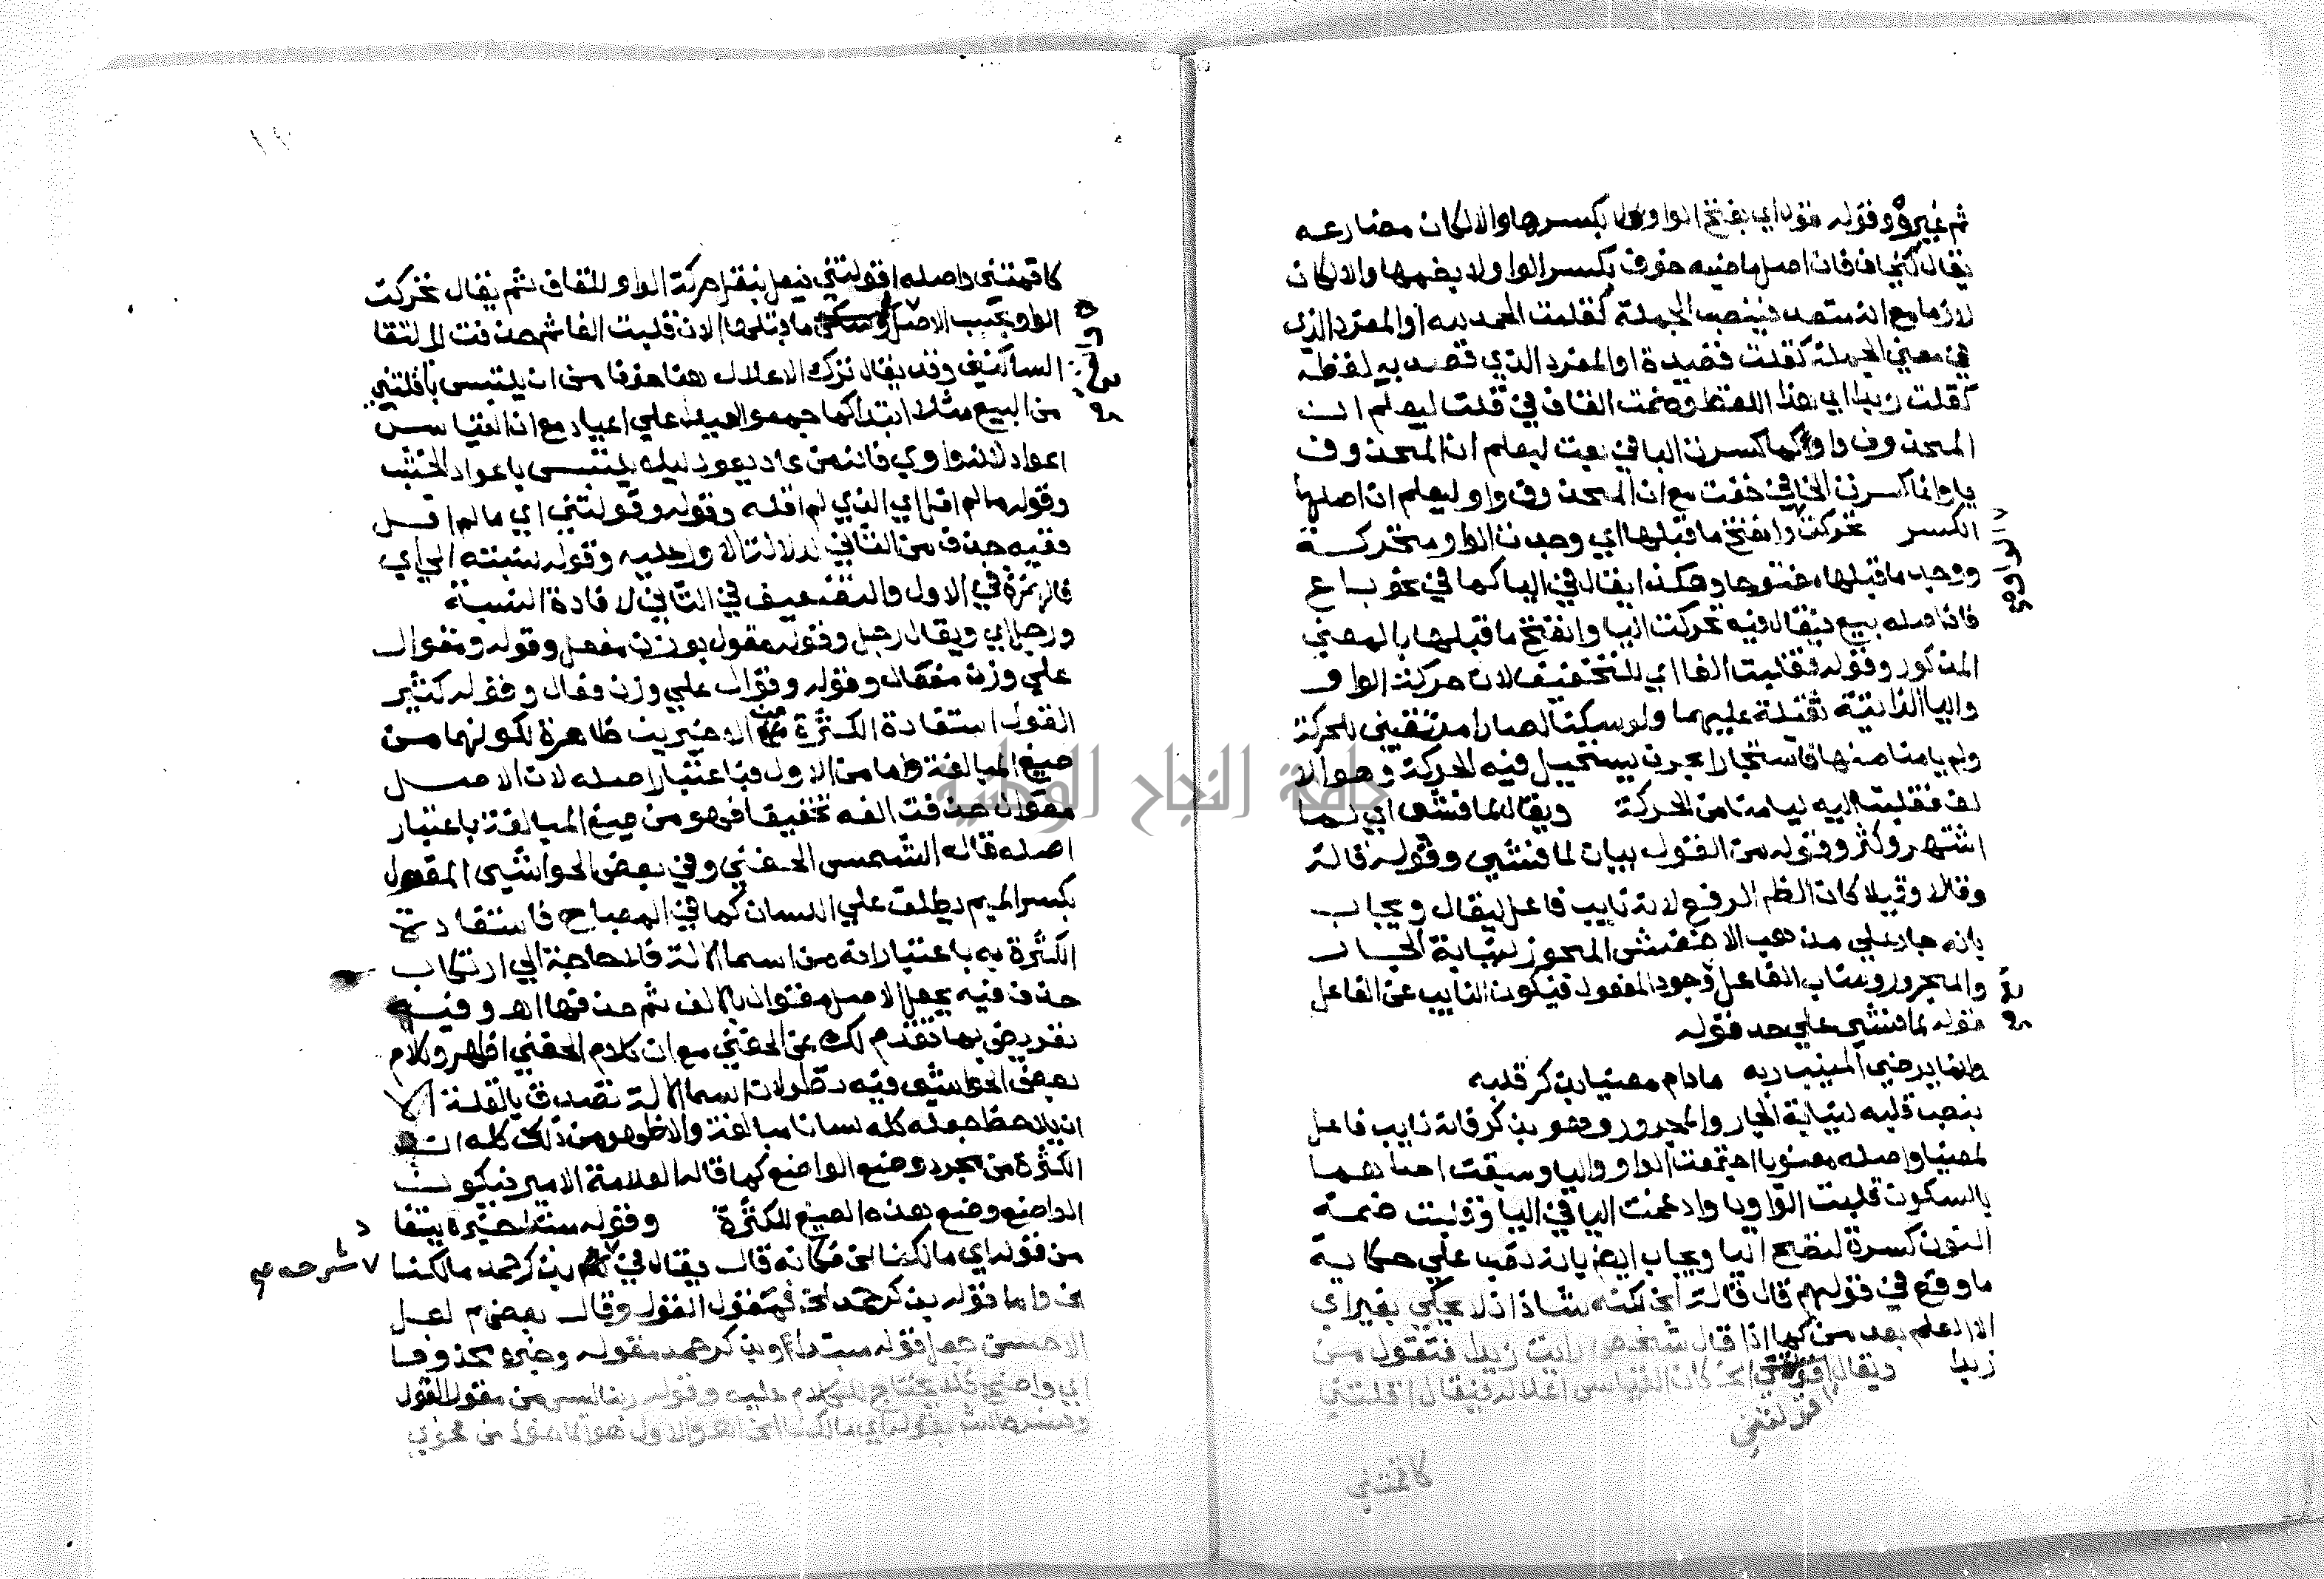 ثم غيره وقوله قول اي بفتح الواو لا بكسرها والا لكان مضارعه
يقال كيخاف فان اصل ماضيه خوف بكسر الواو ولا بضمها والا لكان
لازما مع انه متعد فينصب الجملة كقلت الحمد لله او المفرد الذي
في معني الجملة كقلت قصيدة او المفرد الذي قصد به لفظه
كقلت زيدا اي هذا اللفظ وضمت القاف في قلت ليعلم ان
المحذوف واو كما كسرت البا في بعت ليعلم ان المحذوف
يا وانما كسرت الخا في خفت مع ان المحذوف واو ليعلم ان اصلها
الكسر تحركت وانفتح ما قبلها اي وجدت الواو متحركة
ووجد ما قبلها مفتوحا وهكذا يقال في اليا كما في نحو باع
فان اصله بيع فيقال فيه تحركت اليا وانفتح ما قبلها بالمعني
المذكور وقوله فقلبت الفا اي للتخفيف لان حركة الواو
واليا الذاتية ثقيلة عليهما ولو سكنا لصارا مستقيني للحركة
ولم يامنا منها فاستجارا بحرف يستحيل فيه الحركة وهو الا
لف فقلبتا اليه ليامنا من الحركة ويقال لما فشى اي لما
اشتهر وكثر وقوله من القول بيان لما فشي وقوله قالة
وقالا وقيلا كان الظم الرفع لانه نايب فاعل ليقال ويجاب
بانه جار علي مذهب الاخفش المجوز لنيابة الجار
والمجرور مناب الفاعل وجود المفعول فيكون النايب عن الفاعل
قوله لما فشي علي حد قوله
وانما يرضي المنيب ربه مادام معنيا بذكر قلبه
بنصب قلبه لنيابة الجار والمجرور وهو بذكر فانه نايب فاعل
لمعنيا واصله معنويا اجتمعت الواو واليا وسبقت احداهما
بالسكون قلبت الواو يا وادغمت اليا في اليا وقلبت ضمة
النون كسرة لتصح اليا ويجاب ايضا بانه نصب علي حكاية
ما وقع في قولهم قال قالة الخ لكنه شاذ اذ لا يحكي بغير اي
الا العلم بعد من كما اذا قال شخص رايت زيدا فتقول من
زيدا ويقال اقولتني الخ كان القياس اعلاله فيقال اقلتني
اقولتني
كاقمتني
كاقمتني واصله اقولتني فيعل بنقل حركة الواو للقاف ثم يقال تحركت
الواو بحسب الاصل وانفتح ما قبلها الان قلبت الفا ثم حذفت لالتقا
الساكنين وقد يقال ترك الاعلال هنا خوفا من ان يلتبس باقلتني
من البيع مثلا ابتدا كما جمعوا العيد علي اعياد مع ان القياس
اعواد لانه واوي فانه من عاد يعود ليلا يلتبس باعواد الخشب
وقوله ما لم اقل اي الذي لم اقله وقوله وقولتني اي ما لم اقل
ففيه حذف من الثاني لدلالة الاول عليه وقوله نسبته الي اي
فالهمزة في الاول والتضعيف في الثاني لافادة النسبة
ورجل اي ويقال رجل وقوله مقول بوزن مفعل وقوله ومقوال
علي وزن مفعال وقوله وقوال علي وزن فعال وقوله كثير
القول استفادة الكثرة من الاخيرين ظاهرة لكونهما من
صيغ المبالغة واما من الاول فباعتبار اصله لان الاصل
مقوال حذفت الفه تخفيفا فهو من صيغ المبالغة باعتبار
اصله قاله الشمس الحفني وفي بعض الحواشي المقول
بكسر الميم يطلق علي اللسان كما في المصباح فاستفادة
الكثرة به باعتبار انه من اسما الالة فلا حاجة الي ارتكاب
حذف فيه بجعل الاصل مقوال بالالف ثم حذفها اهـ وفيه
تعريض بما تقدم لك عن الحفني مع ان كلام الحفني اظهر وكلام
بعض الحواشي فيه نظر لان اسما الالة تصدق بالقلة الا
ان يلاحظ جعله كله لسانا مبالغة والاظهر من ذلك كله ان
الكثرة من مجرد وضع الواضع كما قاله العلامة الامير فيكون
الواضع وضع هذه الصيغ للكثرة وقوله مبتدا خبره يتفا
من قوله اي مالكنا الخ فكانه قال يقال في شرحه بذكر حمد مالكنا
الخ واما قوله بذكر حمد الخ فمقول القول وقال بعضهم لعل
الاحسن جعل قوله مبتدا وبذكر حمد مقوله وخبره محذوفا
اي واضح فلا يحتاج للكلام عليه وقوله